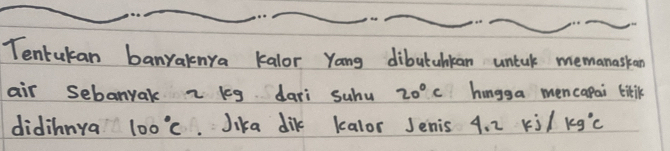 Tentukan banyaknya kalor yang dibutuhkan untuk memanaskan
air sebanyak 2 kg dari suhu 20°c hingga mencapai titik
didihnya 100°c. Jika dik kalor Jenis 4.2 kj/kg°c